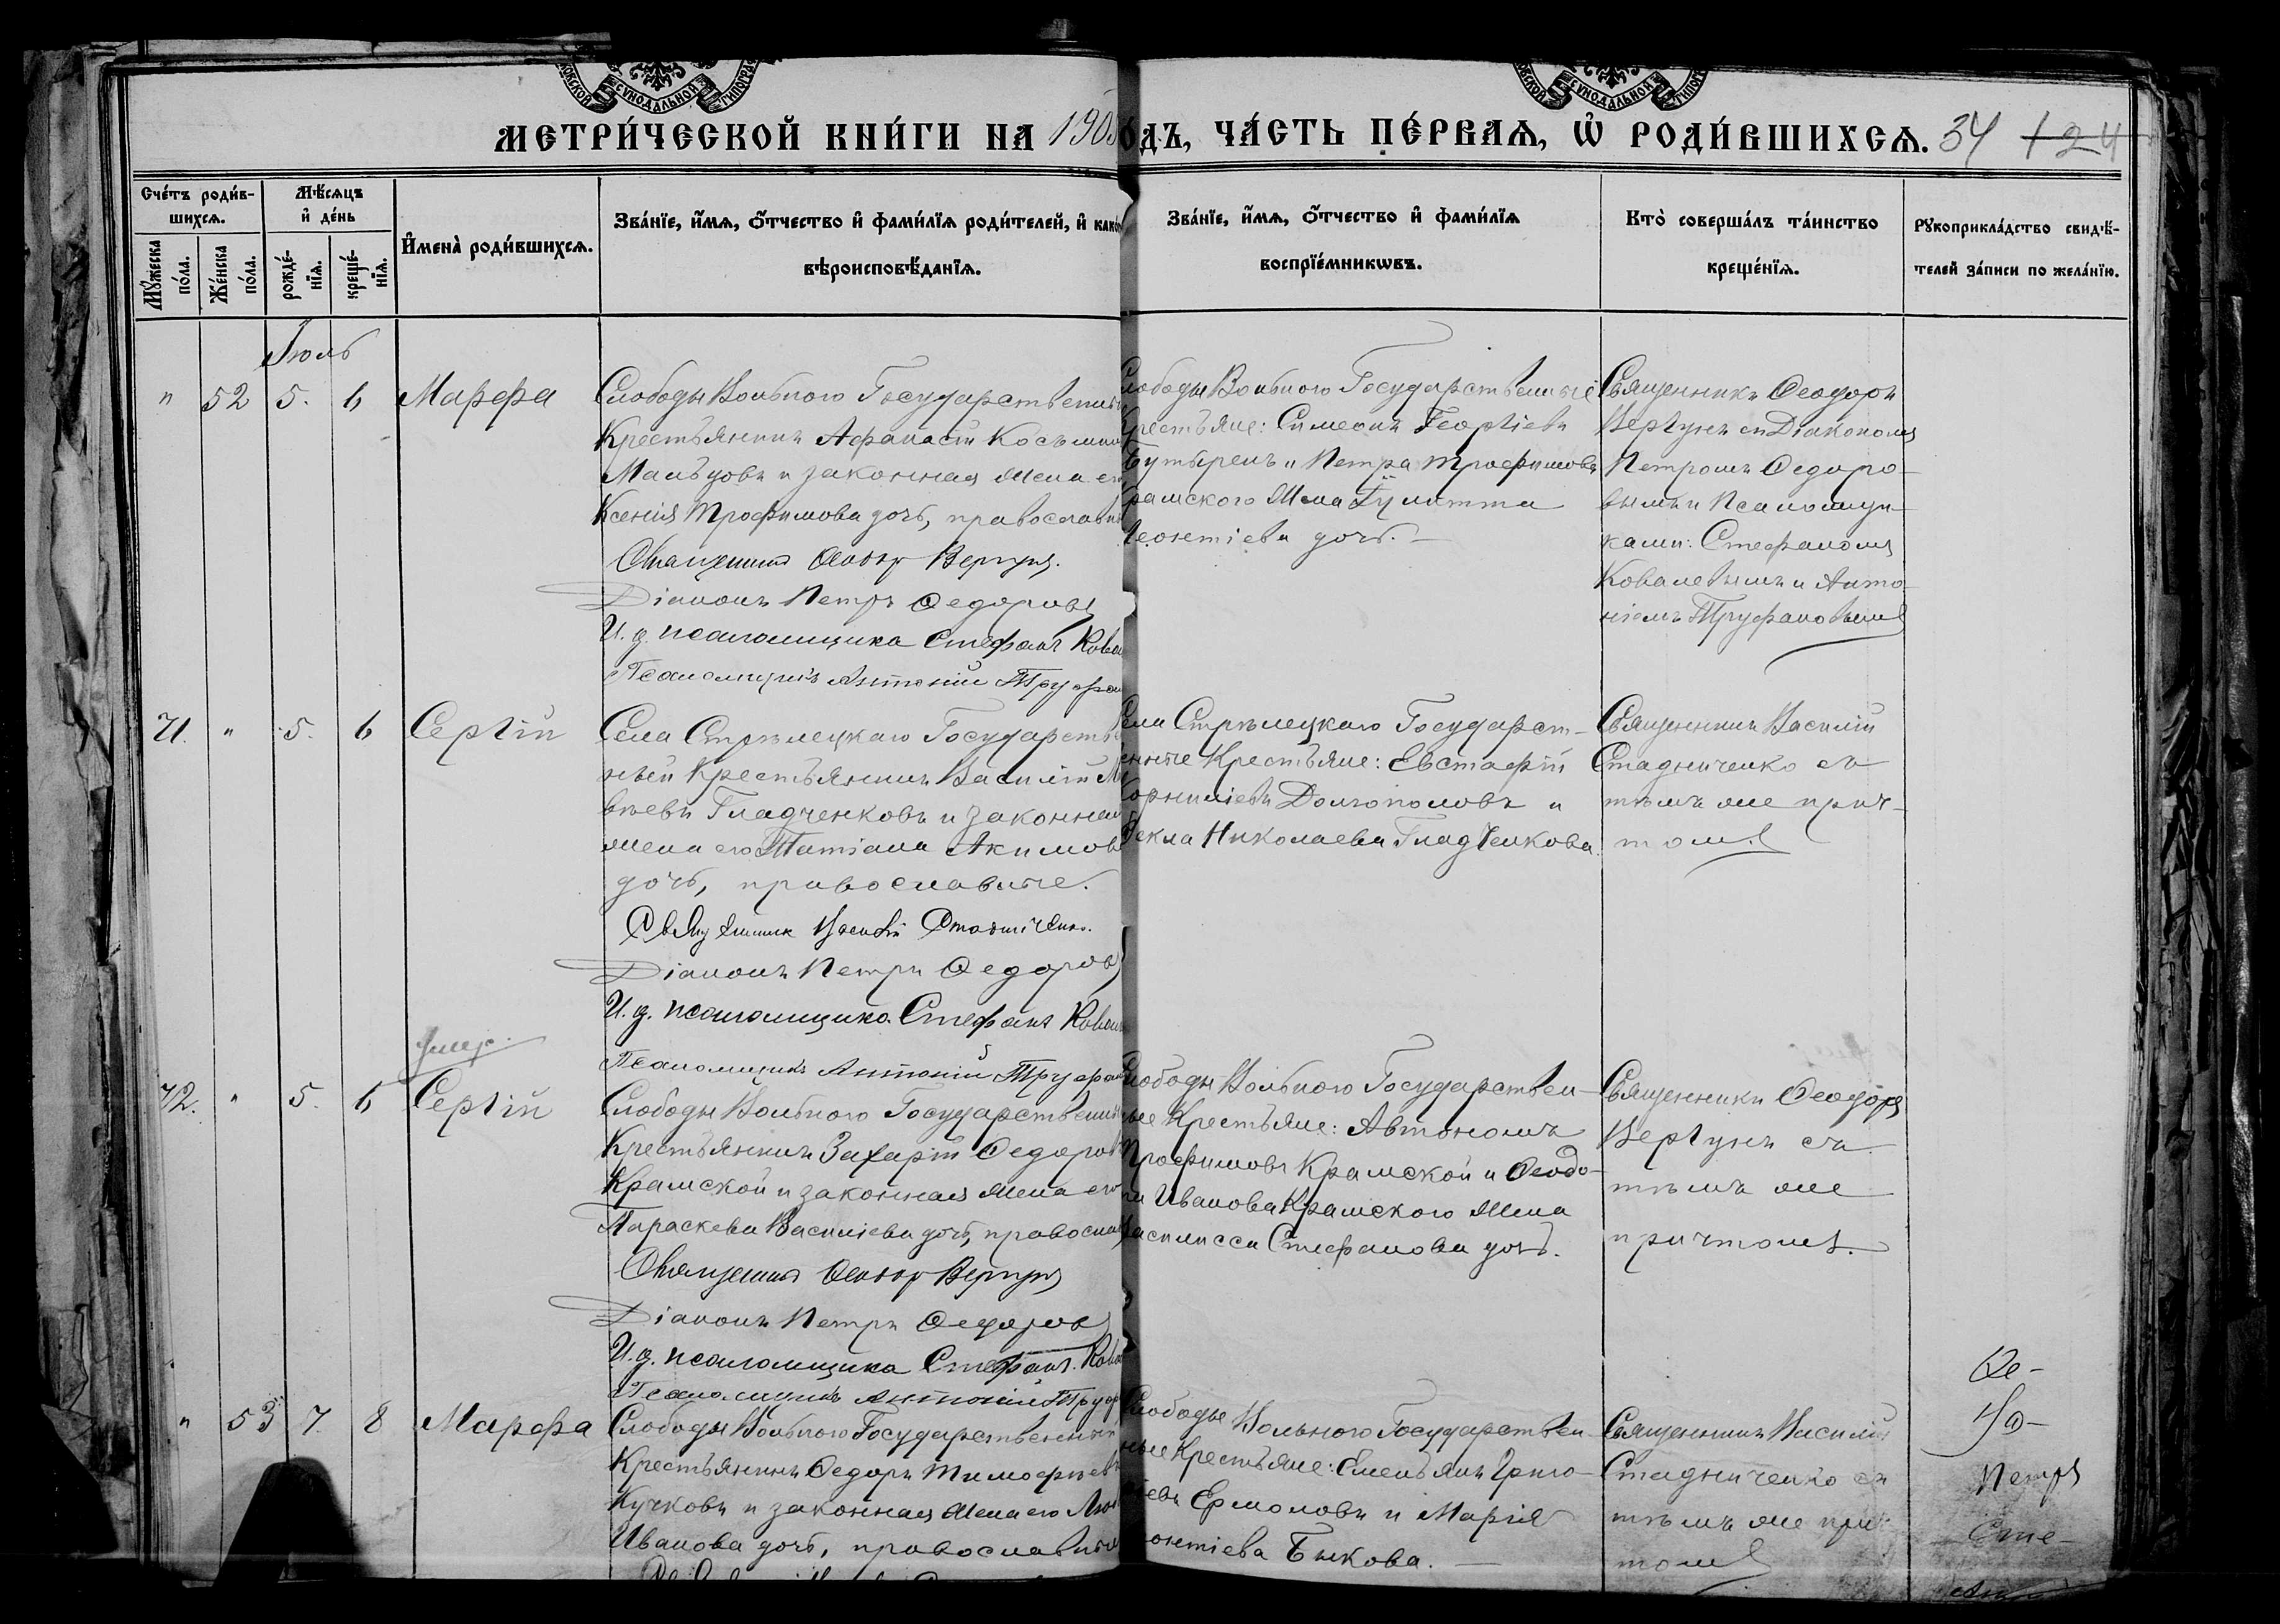 МЕТРИ́ЧЕСКОЙ КНИ́ГИ НА 190
ОДЪ, ЧА́СТЬ ПЕ́РВАѦ, Ѡ РОДИ́ВШИХСѦ. 34 124
Сче́тъ роди́в-
шихсѧ.
Мѣ́сѧцъ
и де́нь
Му́жеска
по́ла.
Же́нска
по́ла.
рожде́-
нїѧ.
креще́-
нїѧ.
Имена̀ роди́вшихсѧ.
Зва́нїе, и́мѧ, о́тчество и фами́лїѧ роди́телей, и како
вѣроисповѣ́данїѧ.
Зва́нїе, и́мѧ, о́тчество и фами́лїѧ
воспрїе́мникѡвъ.
Кто̀ соверша́лъ та́инство
креще́нїѧ.
Рукоприкла́дство свидѣ́-
телей за́писи по жела́нїю.
Іюль
" 52 5. 6 Марфа
Слободы Вольного Государственный
Крестьянинъ Афанасій Косьмин
Мальцовъ и законная жена его
Ксенія Трофимова дочь, православн
Священникъ Ѳеодоръ Вергунъ.
Діаконъ Петръ Ѳедоровъ
И. д. псаломщика Стефанъ Кова
Псаломщикъ Антоній Труфан
Слободы Вольного Государственные
Крестьяне: Симеонъ Георгіевъ
Бутыренъ и Петра Трофимова
Крамского жена Іулитта
Леонтіева дочь. —
Священникъ Ѳеодоръ
Вергунъ съ Діакономъ
Петромъ Ѳедоро-
вымъ и Псаломщи-
ками: Стефаномъ
Ковалевымъ и Анто-
ніемъ Труфановымъ
71. " 5. 6 Сергій
Села Стрѣлецкаго Государстве
ный Крестьянинъ Василій М
вѣевъ Гладченковъ и законная
жена его Татіана Акимов
дочь, православные.
Священникъ Василій Стадниченко.
Діаконъ Петръ Ѳедоровъ
И. д. псаломщика Стефанъ Ковал
Псаломщикъ Антоній Труфан
Села Стрѣлецкаго Государст-
венные Крестьяне: Евстафій
Корниліевъ Долгополовъ и
Ѳекла Николаева Гладченкова.
Священникъ Василій
Стадниченко съ
тѣмъ же прич-
томъ.
умер.
72. " 5. 6 Сергій
Слободы Вольного Государственный
Крестьянинъ Захарій Ѳедоров
Крамской и законная жена его
Параскева Васильева дочь, правосла
Священникъ Ѳеодоръ Вергунъ
Діаконъ Петръ Ѳедоровъ
И. д. псаломщика Стефанъ Кова
Псаломщикъ Антоній Труф
Слободы Вольного Государствен-
ные Крестьяне: Автономъ
Трофимовъ Крамской и Ѳеодо-
ра Иванова Крамского жена
Василисса Стефанова дочь.
Священникъ Ѳеодоръ
Вергунъ съ
тѣмъ же
причтомъ.
" 53 7. 8 Марфа
Слободы Вольного Государственный
Крестьянинъ Ѳедоръ Тимофѣев
Кучковъ и законная жена его
Иванова дочь, православные
Слободы Вольного Государствен-
ные Крестьяне: Емельянъ Григо-
рьевъ Ермоловъ и Марія
Леонтіева Быкова. —
Священникъ Василій
Стадниченко съ
тѣмъ же прич
томъ
Петръ
Сте-